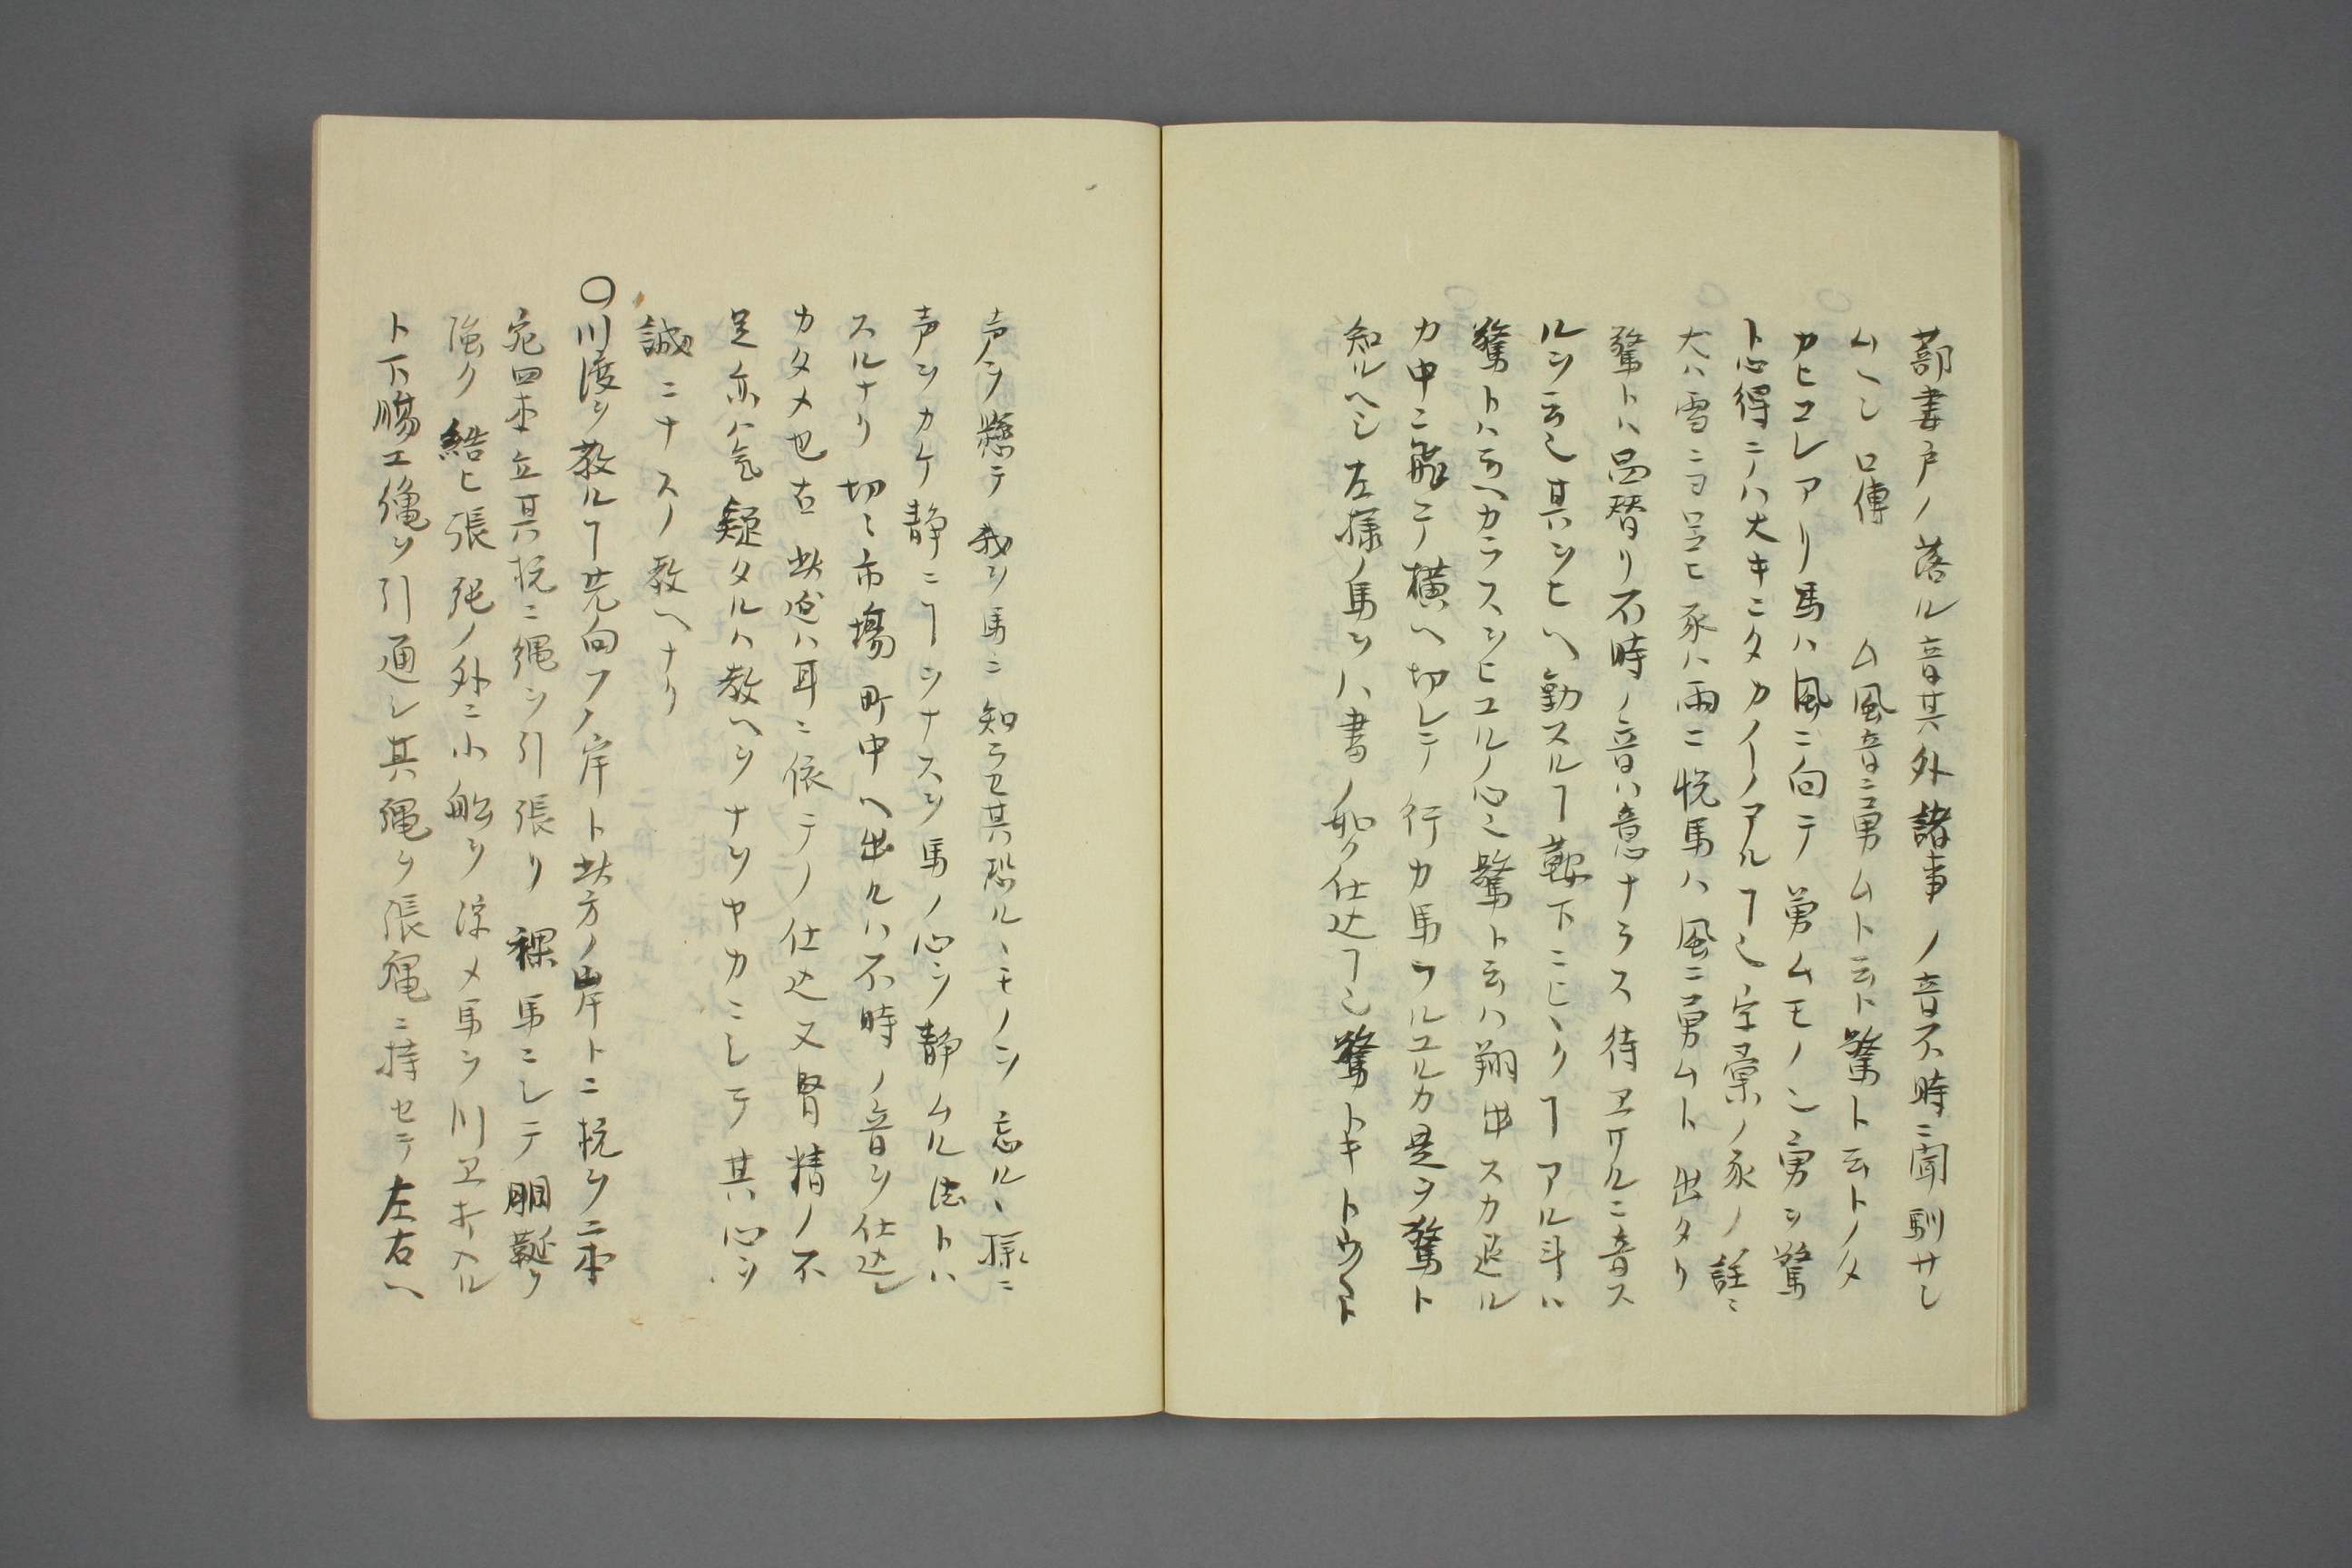 蔀妻戸ノ落ル音其外諸事ノ音不時ニ聞馴サし
ムヘシ 口傳 ム風音ニ勇ムト云ト驚ト云トノタ
カヒコレアリ馬ハ風ニ向テ勇ムモノヲ勇ヲ驚
ト心得テハ大キニタカイノアルヿ也字彙ノ豕ノ註ニ
犬ハ雪ニヨロコヒ豕ハ雨ニ悦馬ハ風ニ勇ムト出タリ
驚トハ昼替リ不時ノ音ハ意ナラス待エサルニ音ス
ルヲ云也其ヲヒヘ動スルヿ鞍下ニヒヽクヿアル斗ハ
驚トハ云ヘカラスヲヒユルノ心也驚ト云ハ翔出スカ退ル
カ中ニ飛テ横ヘ切レテ行カ馬フルユルカ是ヲ驚ト
知ルヘシ左様ノ馬ヲハ書ノ如ク仕込ヿ也驚トキトウ〱ト
声ヲ懸テ我ヲ馬ニ知ラセ其恐ルヽモノヲ忘ルヽ様ニ
声ヲカケ静ニヿヲナスヲ馬ノ心ヲ静ムル法トハ
スルナリ切々市場町中ヘ出ルハ不時ノ音ヲ仕込
カタメ也右此迠ハ耳ニ依テノ仕込又腎精ノ不
足亦ハ気疑タルハ教ヘヲナツヤカニシテ其心ヲ
誠ニナスノ教ヘナリ
〇川渡ヲ教ルヿ先向フノ岸ト此方ノ岸トニ杭ヲ二本
宛四本立其杭ニ縄ヲ引張リ裸馬ニシテ胴鞚ヲ
強ク結ヒ張縄ノ外ニ小船ヲ浮メ馬ヲ川エ打入ル
ト下腸エ縄ヲ引通シ其縄ヲ張縄ニ持セテ左右ヘ